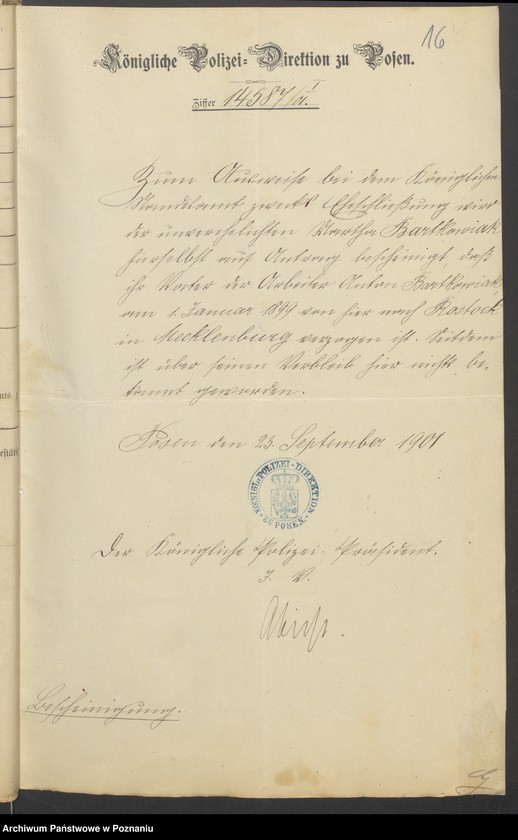 16
Königliche Polizei-Direktion zu Posen.
Ziffer 14587/01. I
Zum Ausweise bei dem Königlichen
Standesamt zwecks Eheschließung wird
der unverehelichten Martha Bartkowiak
hierselbst auf Antrag bescheinigt, daß
ihr Vater der Arbeiter Anton Bartkowiak
am 1. Januar 1899 von hier nach Rostock
in Mecklenburg verzogen ist. Seitdem
ist über seinen Verbleib hier nichts be-
kannt geworden.
Posen den 23. September 1901
KOENIGL. POLIZEI-DIREKTION
ZU POSEN.
Der Königliche Polizei-Präsident.
I. V.
Bescheinigung.
Archiwum Państwowe w Poznaniu